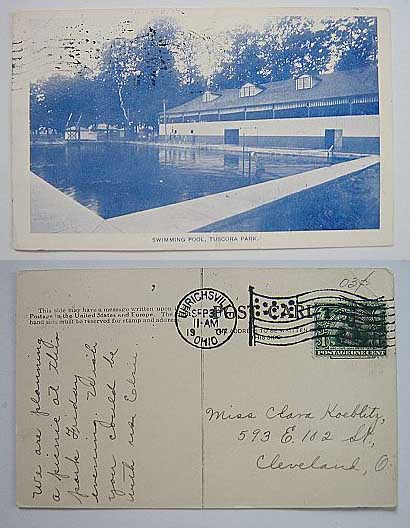 SWIMMING POOL, TUSCORA PARK.
This side may have a message written upon
Postage in the United States and Europe. The
hand side must be reserved for stamp and address
UHRICHSVILLE
SEP 3
1-AM
19
OHIO
POST CARD
POSTAGE ONE CENT
We are planning
a picnic at the
park Tuesday
evening. Wish
you could be
with us.
Miss Clara Koeblitz,
593 E. 102 St.,
Cleveland, O.